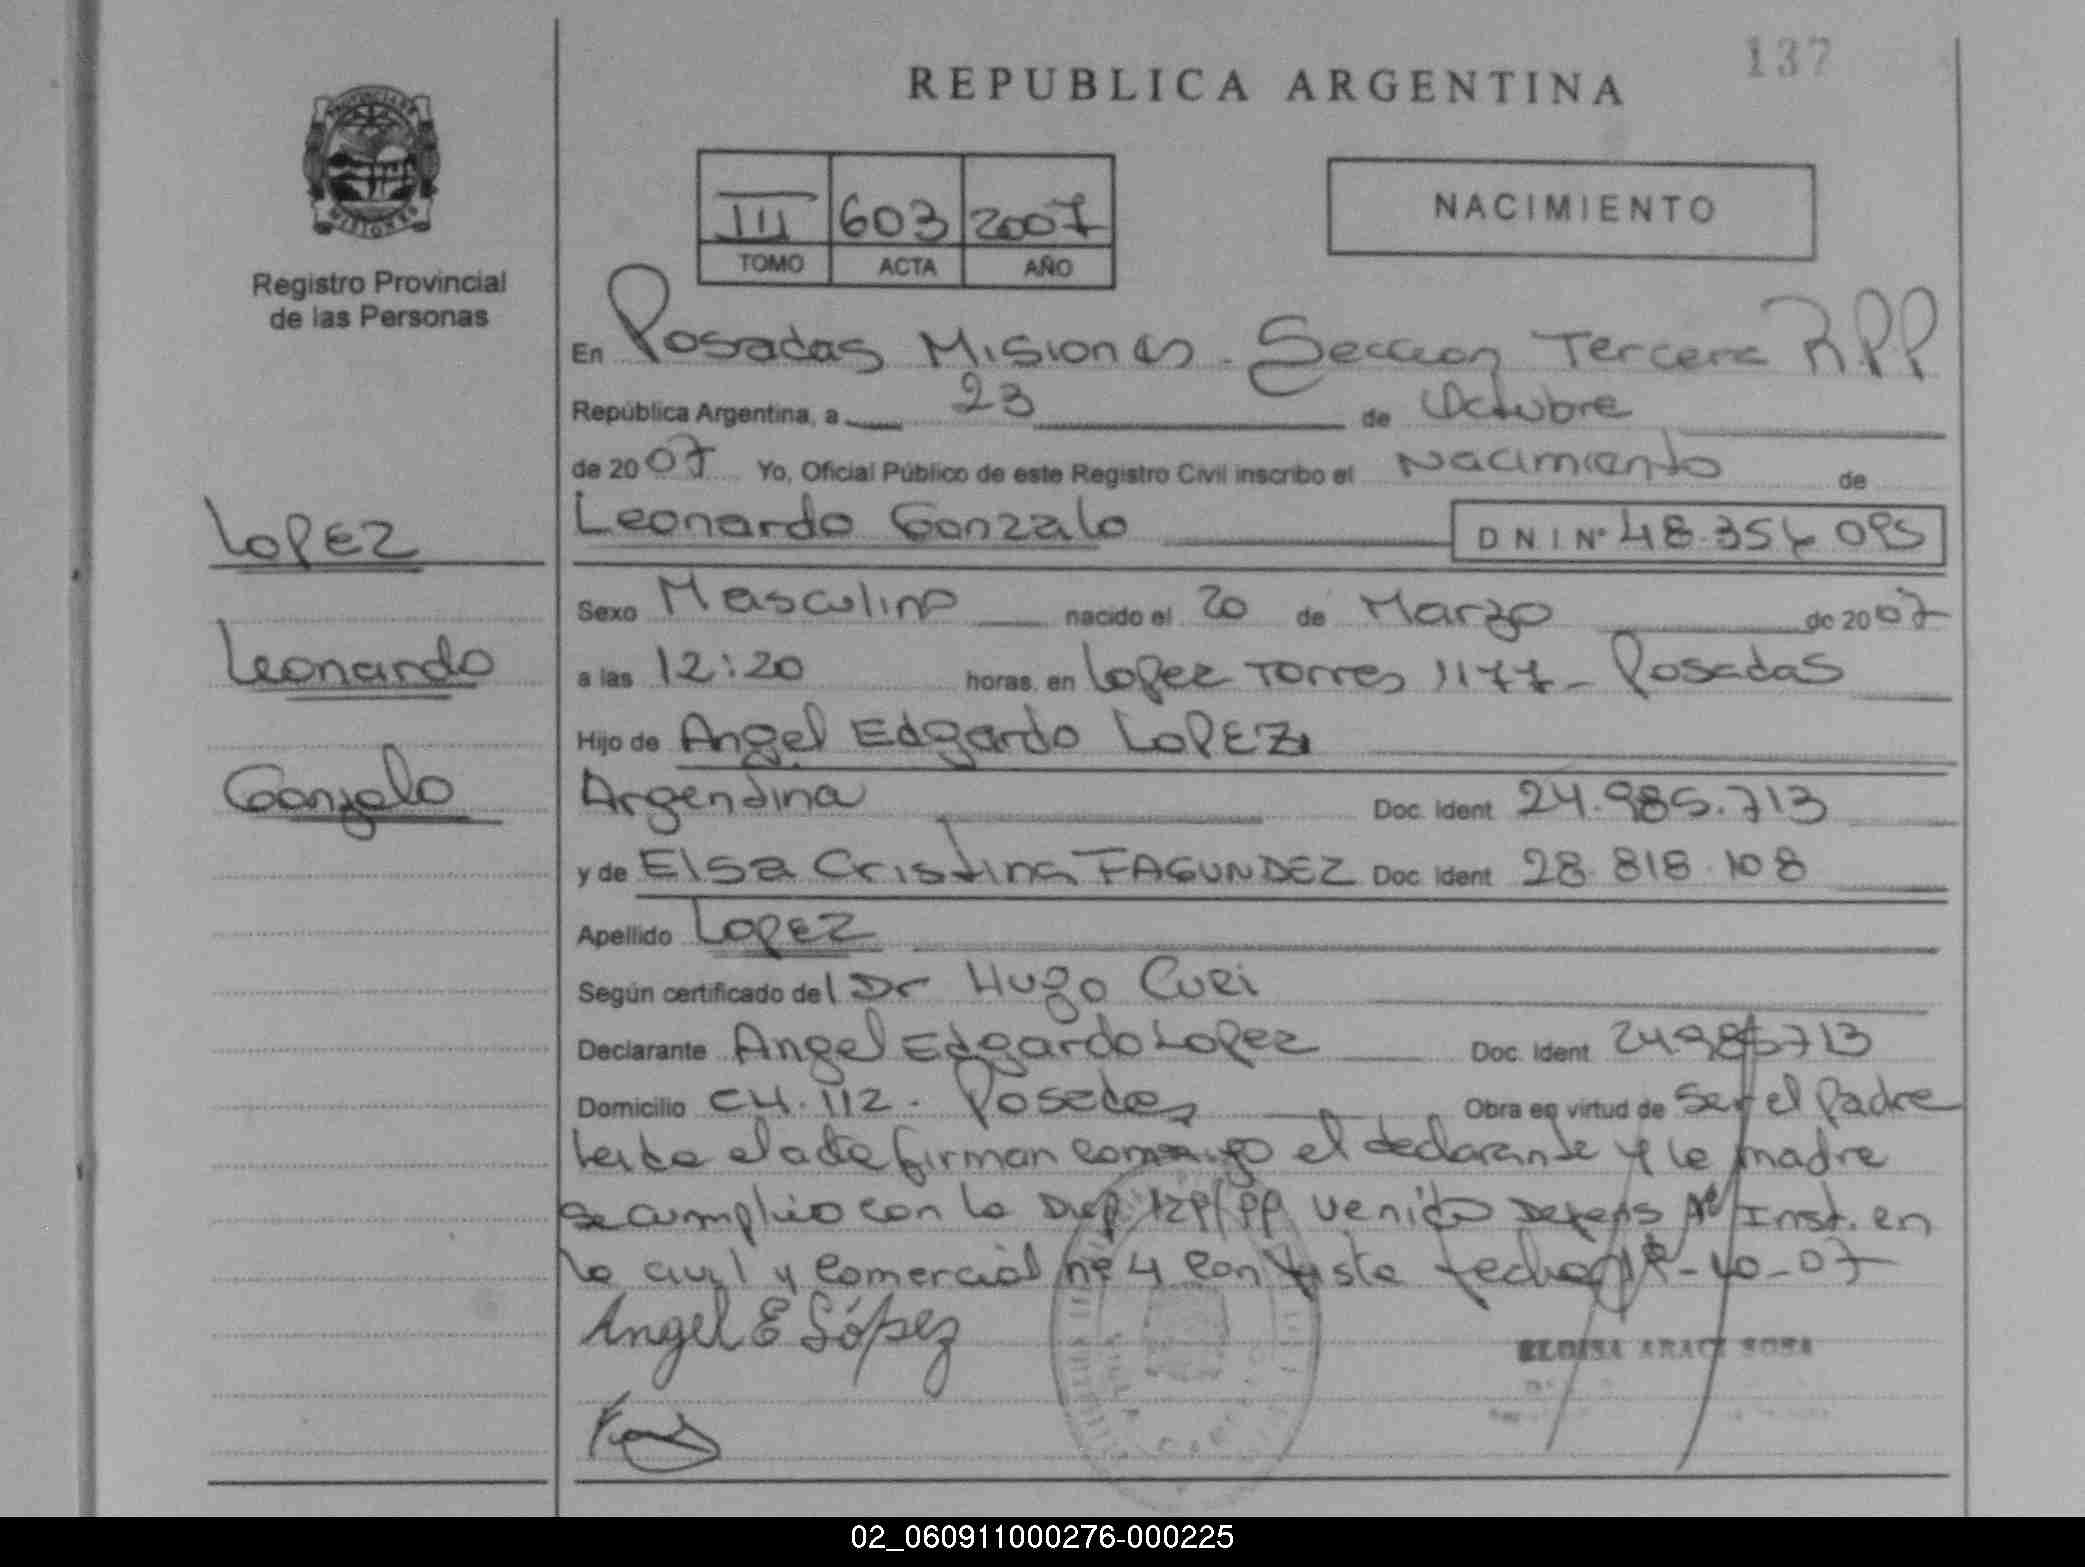 137
REPUBLICA ARGENTINA
PROVINCIA DE
MISIONES
Registro Provincial
de las Personas
III 603 2007
TOMO ACTA AÑO
NACIMIENTO
En Posadas Misiones - Seccion Tercera R.P.P
República Argentina, a 23 de Octubre
de 2007 Yo, Oficial Público de este Registro Civil inscribo el Nacimiento de
Leonardo Gonzalo DNI Nº 48.354.095
LOPEZ
Leonardo
Gonzalo
Sexo Masculino nacido el 20 de Marzo de 2007
a las 12:20 horas, en Lopez Torres 1177 - Posadas
Hijo de Angel Edgardo LOPEZ
Argentina Doc. Ident 24.985.713
y de Elsa Cristina FAGUNDEZ Doc. Ident 28.818.108
Apellido LOPEZ
Según certificado del Dr Hugo Curi
Declarante Angel Edgardo Lopez Doc. Ident 24985713
Domicilio CH. 112 - Posadas Obra en virtud de Ser el Padre
leida el acta firman conmigo el declarante y la madre
se cumplio con la Disp. 129/99 Inst. en
lo civil y comercial nº 4 con fecha -10-07
Angel E López
ELOISA ARACI SOSA
02_060911000276-000225